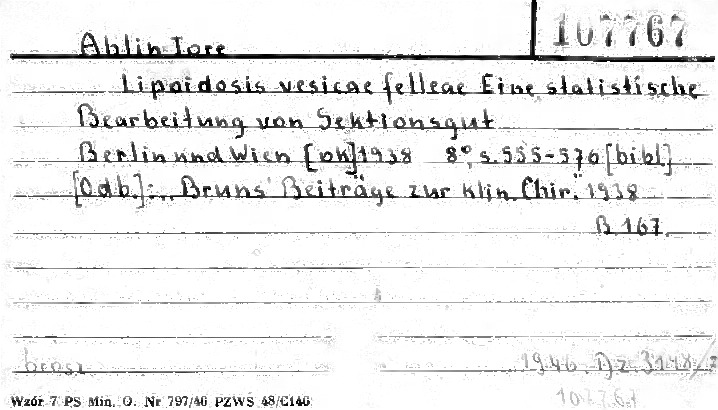 107767
Ahlin Tore
Lipoidosis vesicae felleae Eine statistische
Bearbeitung von Sektionsgut
Berlin und Wien [ok]1938 8°, s. 555-576 [bibl]
[Odb.]:.. Bruns' Beiträge zur klin. Chir. 1938
B. 167.
brosz
1946. Dz. 3148/
107767
Wzór 7 PS Min. O. Nr 797/46 PZWS 48/C146